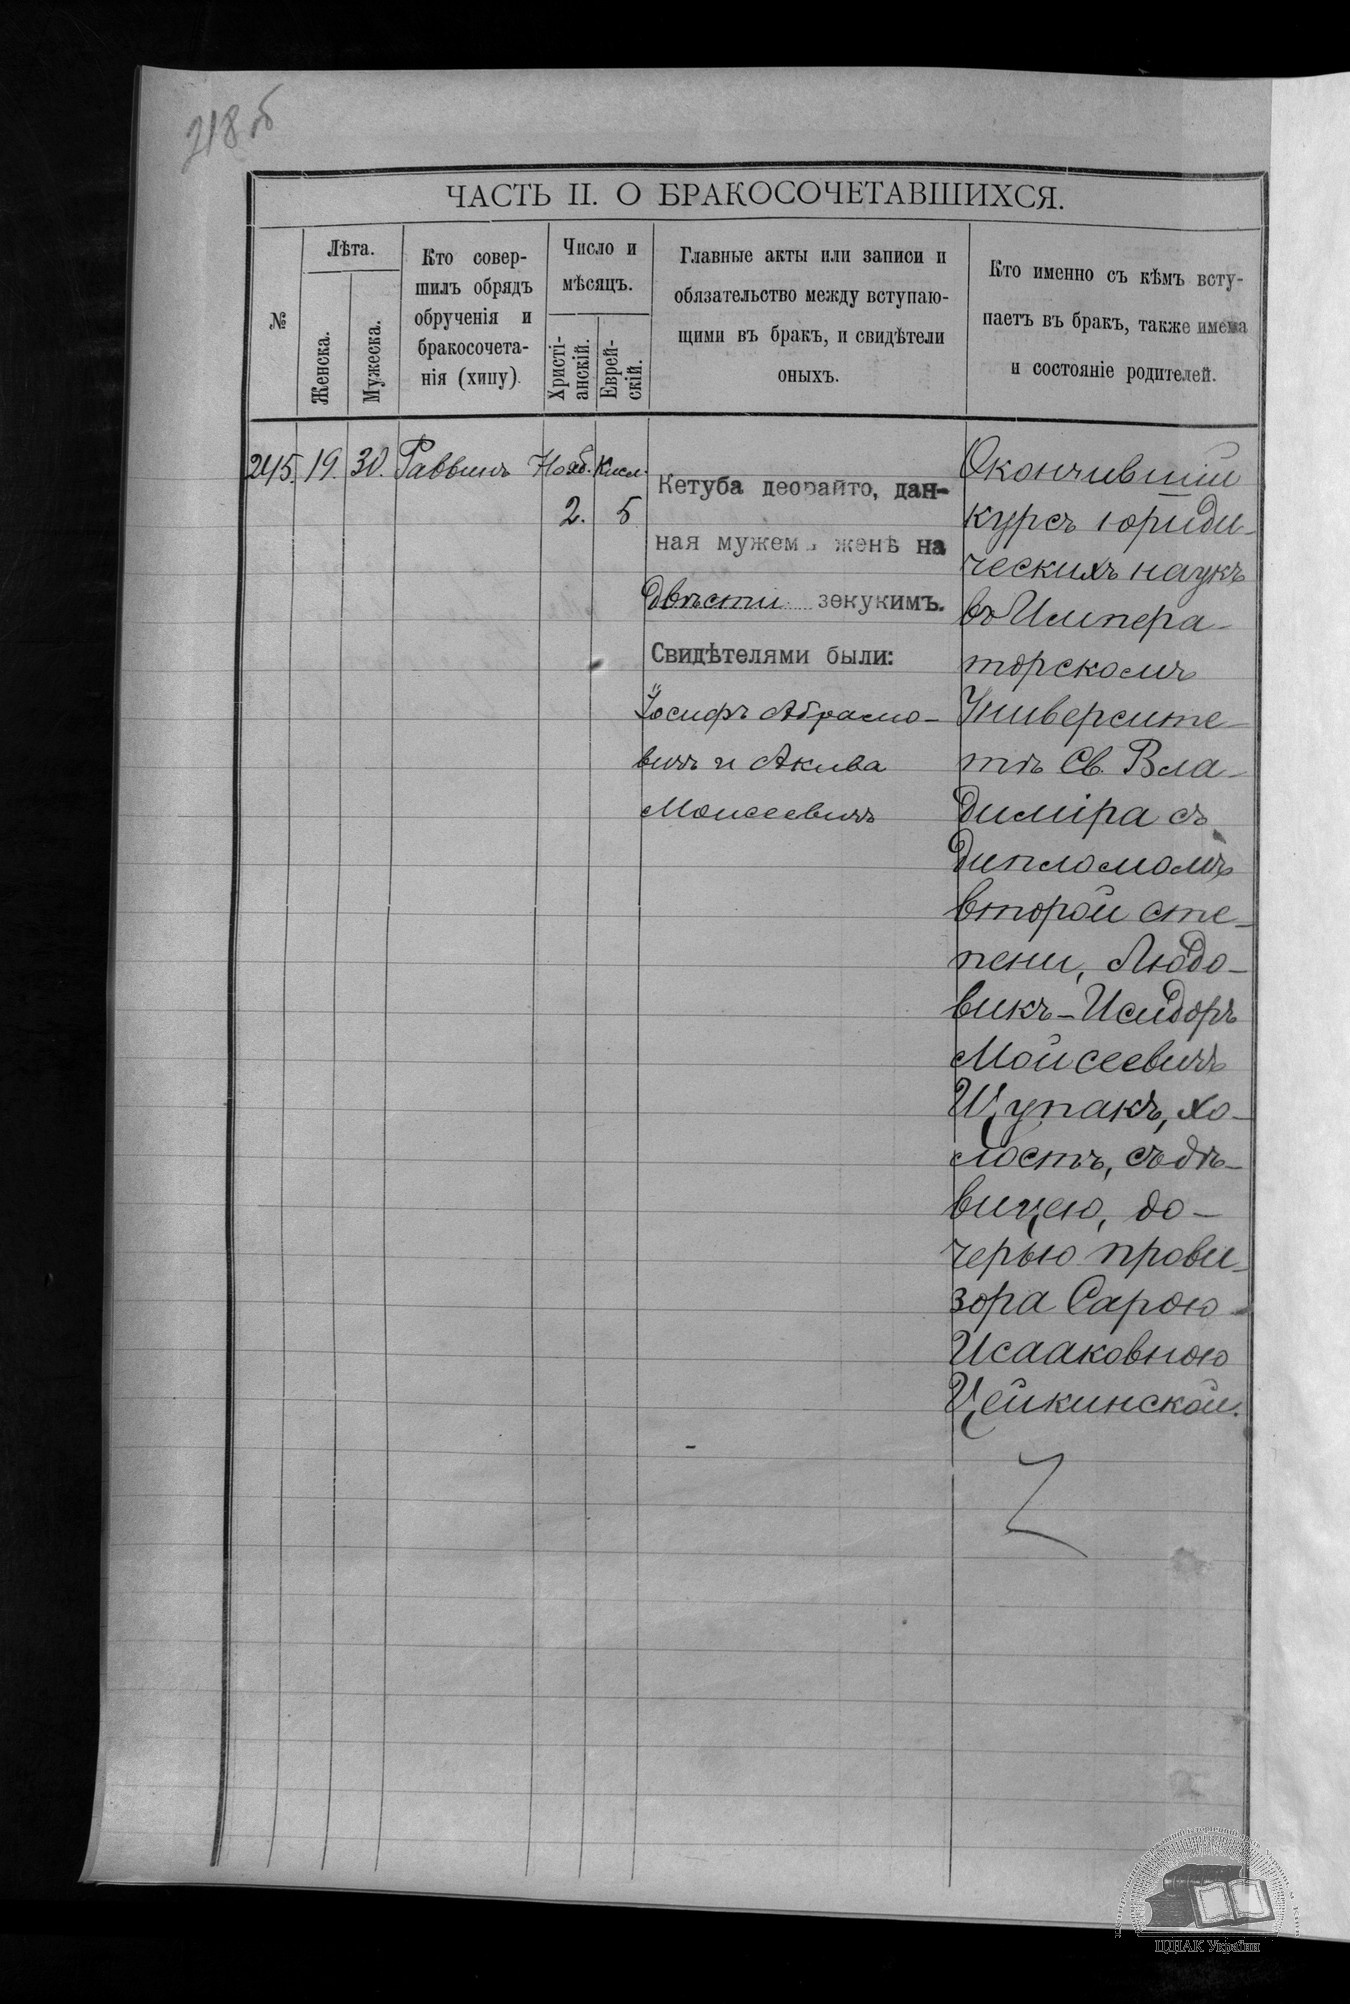 218 об
ЧАСТЬ II. О БРАКОСОЧЕТАВШИХСЯ.
№
Лѣта.
Женска.
Мужеска.
Кто совер-
шилъ обрядъ
обрученія и
бракосочета-
нія (хипу).
Число и
мѣсяцъ.
Христі-
анскій.
Еврей-
скій.
Главные акты или записи и
обязательство между вступаю-
щими въ бракъ, и свидѣтели
оныхъ.
Кто именно съ кѣмъ всту-
паетъ въ бракъ, также имена
и состояніе родителей.
245. 19. 30. Раввинъ Нояб. Кисл.
2. 5
Кетуба деорайто, дан-
ная мужемъ женѣ на
двѣсти зекукимъ.
Свидѣтелями были:
Іосифъ Абрамо-
вичъ и Акива
Моисеевичъ
Окончившій
курсъ юриди-
ческихъ наукъ
въ Импера-
торскомъ
Университе-
тѣ Св. Вла-
диміра съ
дипломомъ
второй сте-
пени, Людо-
викъ-Исидоръ
Мойсеевичъ
Щупакъ, хо-
лостъ, съ дѣ-
вицею, до-
черью прови-
зора Сарою
Исааковною
Цейкинской.
ЦДІАК України